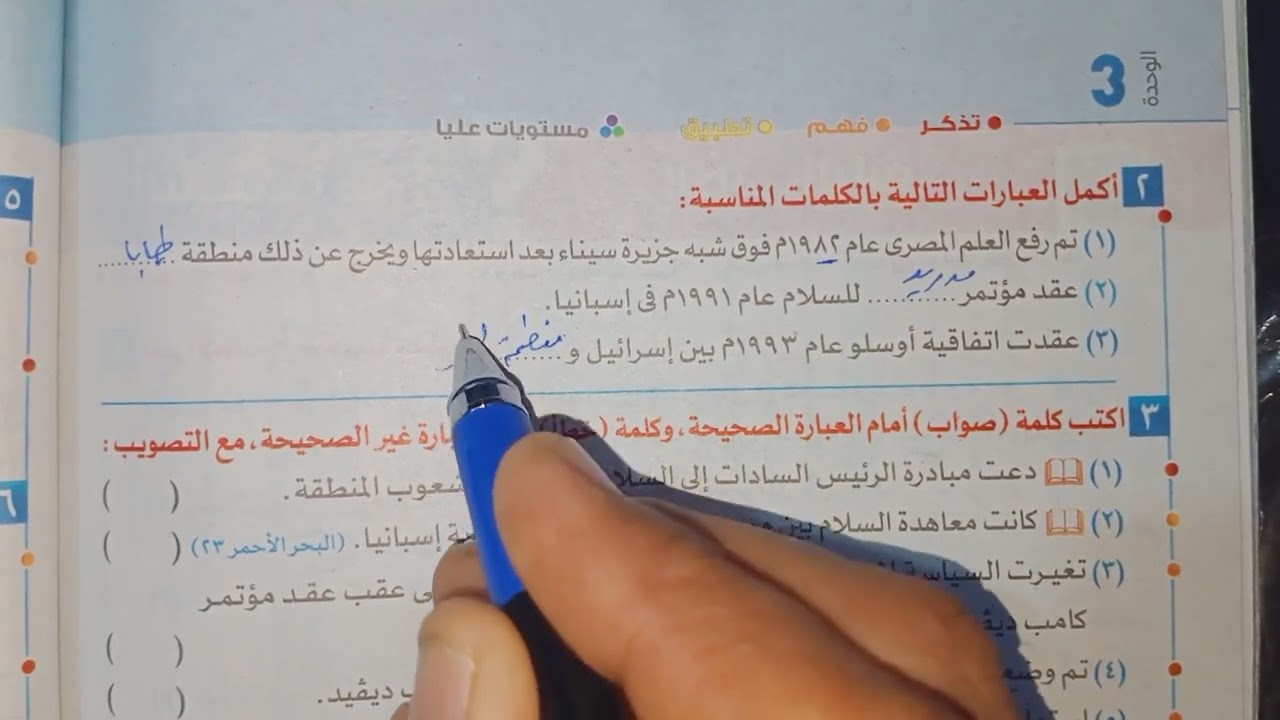 الوحدة 3
تذكر فهم تطبيق مستويات عليا
٢ أكمل العبارات التالية بالكلمات المناسبة:
(١) تم رفع العلم المصرى عام ١٩٨٢م فوق شبه جزيرة سيناء بعد استعادتها ويخرج عن ذلك منطقة طابا
(٢) عقد مؤتمر مدريد للسلام عام ١٩٩١م فى إسبانيا.
(٣) عقدت اتفاقية أوسلو عام ١٩٩٣م بين إسرائيل و منظمة
٣ اكتب كلمة (صواب) أمام العبارة الصحيحة، وكلمة (خطأ) العبارة غير الصحيحة، مع التصويب:
(١) دعت مبادرة الرئيس السادات إلى السلام شعوب المنطقة. ( )
(٢) كانت معاهدة السلام بين إسبانيا. (البحر الأحمر ٢٣) ( )
(٣) تغيرت السياسة عقب عقد مؤتمر
كامب ديڤيد ( )
(٤) تم وضع ديڤيد. ( )
٥
٦